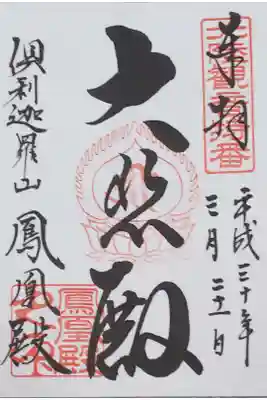 奉拝
平成三十年
三月二十一日
大悲殿
倶利迦羅山鳳凰殿
鳳凰殿